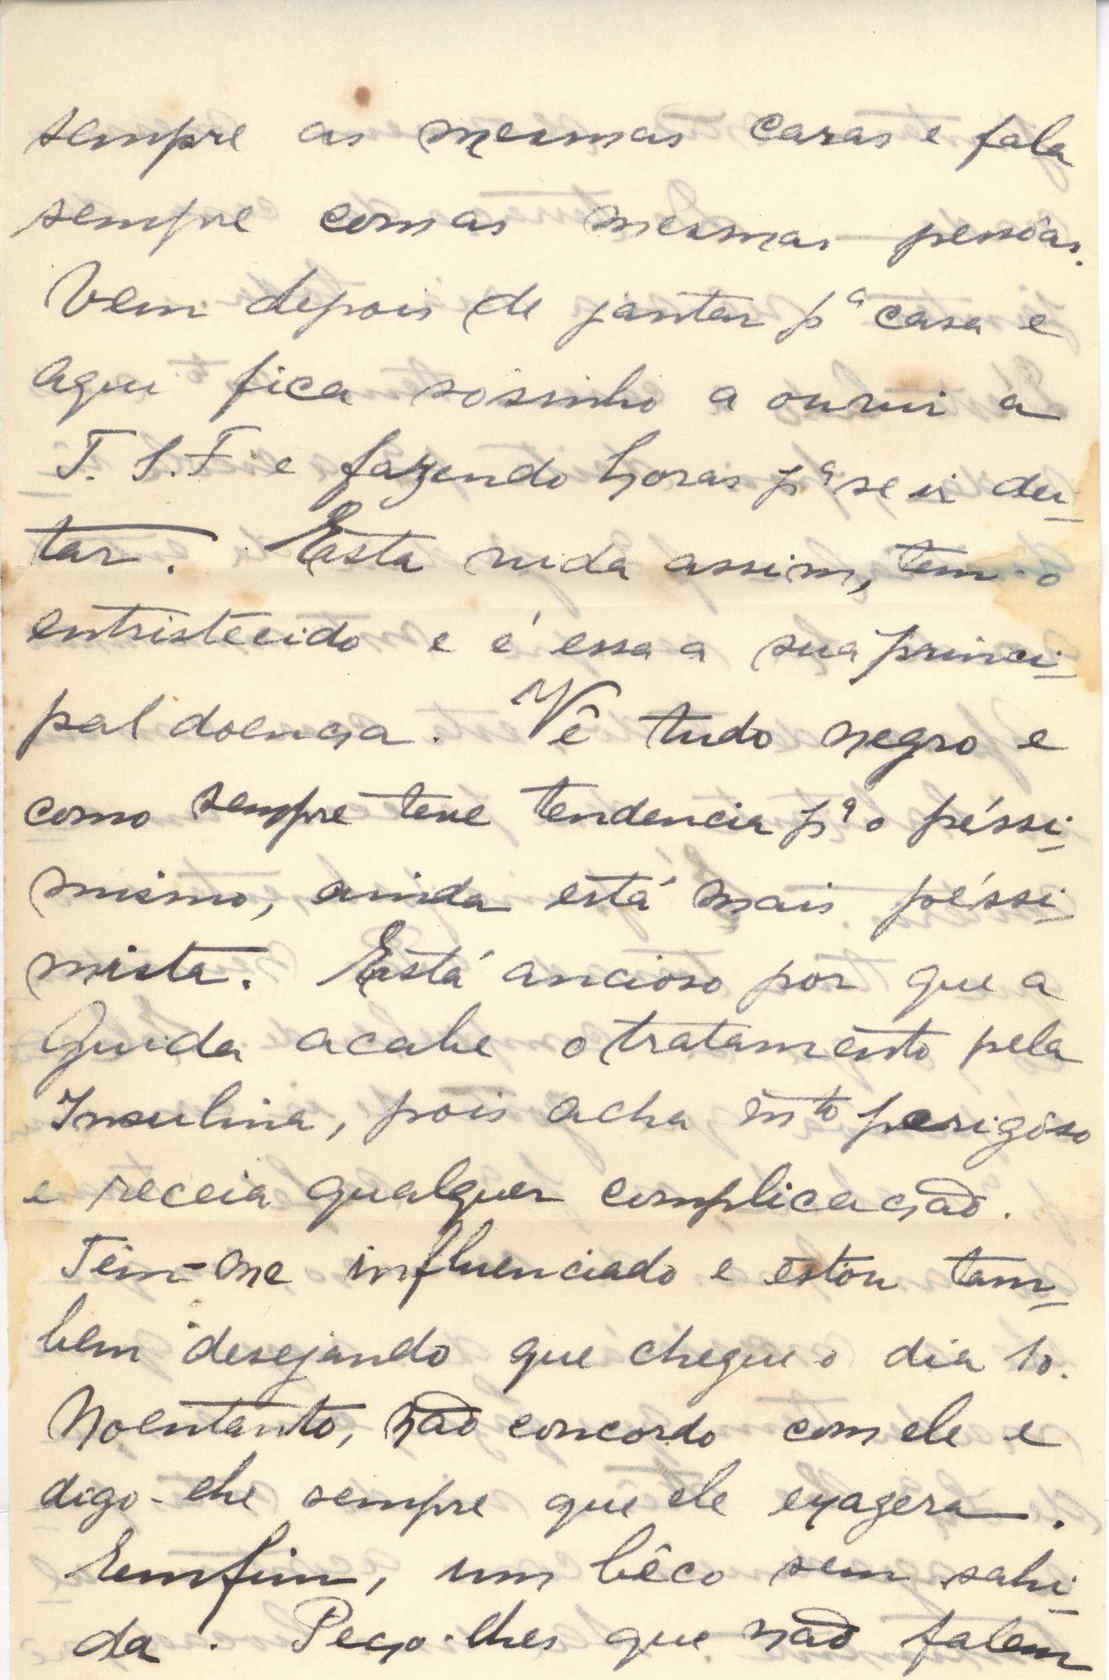 sempre as mesmas caras e fala
sempre com as mesmas pessôas.
Vem depois de jantar pª casa e
aqui fica sosinho a ouvir a
T. S. F. e fazendo horas pª se ir dei-
tar. Esta vida assim, tem-o
entristecido e é essa a sua princi-
pal doença. Vê tudo negro e
como sempre teve tendencia pª o péssi-
mismo, ainda está mais péssi-
mista. Está ancioso por que a
Guida acabe o tratamento pela
Insulina, pois acha mto perigôso
e receia qualquer complicação.
Tem-me influenciado e estou tam-
bem desejando que chegue o dia 10.
No entanto, não concordo com ele e
digo-lhe sempre que ele exagera.
Emfim, um bêco sem sahi-
da. Peço-lhes que não falem